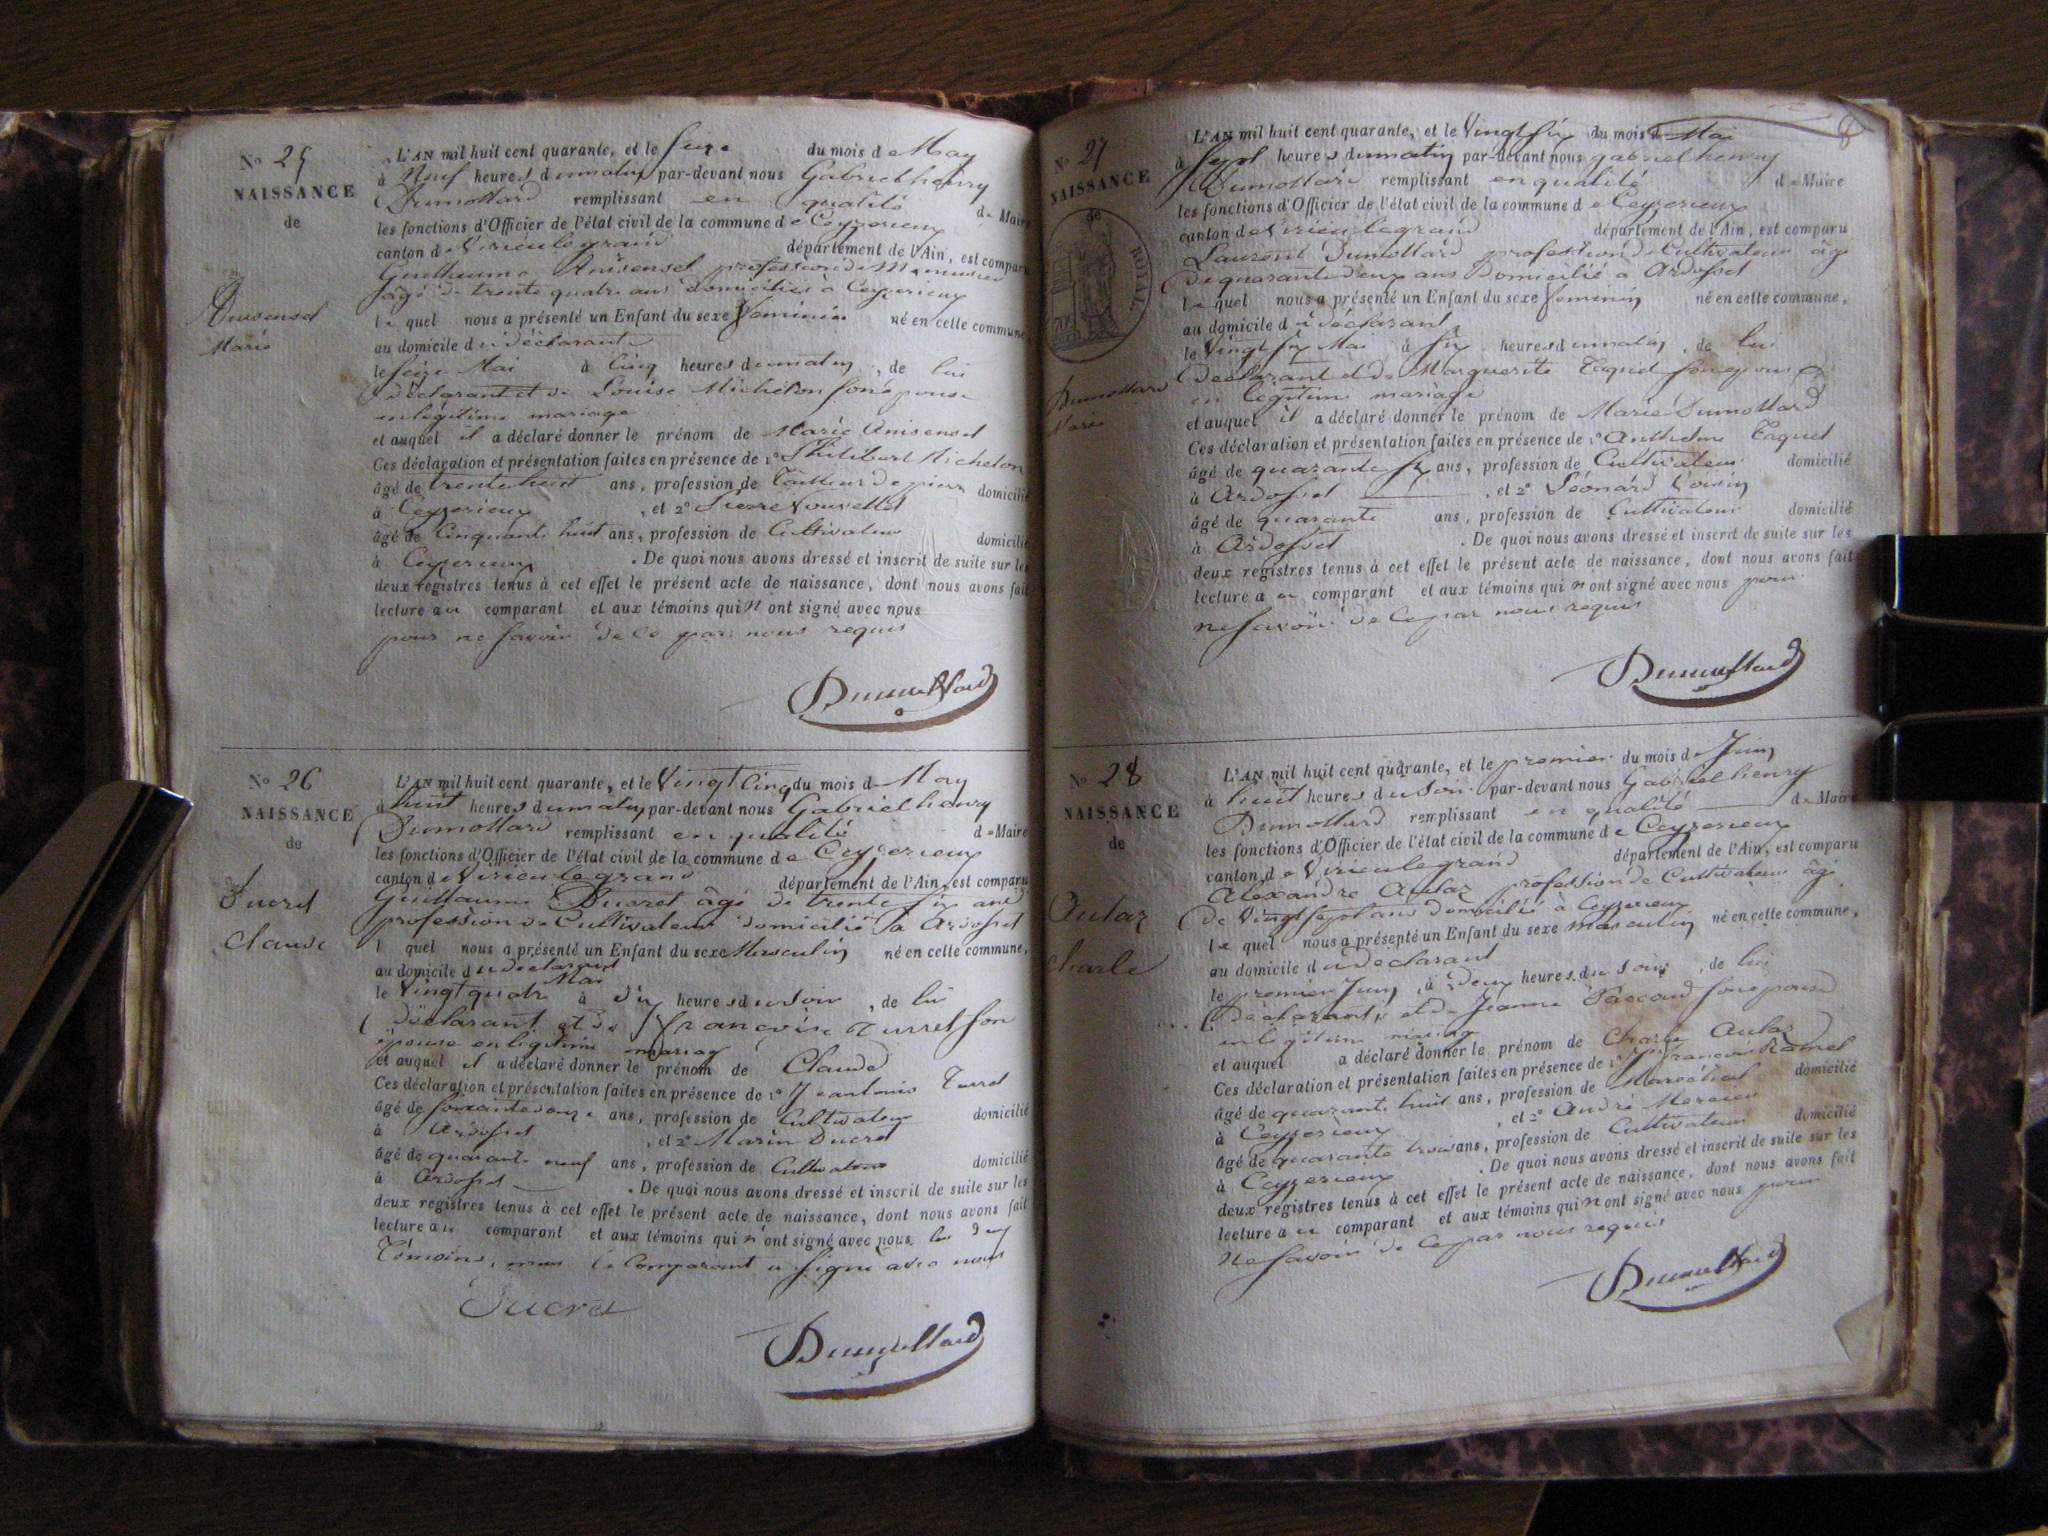 N° 25
NAISSANCE
de
Anisensel
Marie
L'AN mil huit cent quarante, et le seize du mois de May
à Neuf heures du matin par-devant nous Gabriel henry
Dumollard remplissant en qualité de Maire
les fonctions d'Officier de l'état civil de la commune de Ceyzerieux
canton de Virieu le grand département de l'Ain, est comparu
Guillaume Anisensel profession de Menuisier
âgé de trente quatre ans domicilié à Ceyzerieux
le quel nous a présenté un Enfant du sexe feminin né en cette commune,
au domicile du déclarant
le seize Mai à Cinq heures du matin, de lui
déclarant et de Louise Michelon son épouse
en légitime mariage
et auquel il a déclaré donner le prénom de Marie Anisensel
Ces déclaration et présentation faites en présence de 1° Philibert Michelon
âgé de trente huit ans, profession de Tailleur de pierre domicilié
à Ceyzerieux, et 2° Pierre
âgé de Cinquante huit ans, profession de Cultivateur domicilié
à Ceyzerieux. De quoi nous avons dressé et inscrit de suite sur les
deux registres tenus à cet effet le présent acte de naissance, dont nous avons fait
lecture au comparant et aux témoins qui n'ont signé avec nous
pour ne savoir de ce par nous requis
Dumollard
N° 26
NAISSANCE
de
Ducret
Claude
L'AN mil huit cent quarante, et le Vingt Cinq du mois de May
à huit heures du matin par-devant nous Gabriel henry
Dumollard remplissant en qualité de Maire
les fonctions d'Officier de l'état civil de la commune de Ceyzerieux
canton de Virieu le grand département de l'Ain, est comparu
Guillaume Ducret âgé de trente six ans
profession de Cultivateur domicilié à Ardosset
l quel nous a présenté un Enfant du sexe Masculin né en cette commune,
au domicile du declarant
le Vingt quatre Mai à dix heures du soir, de lui
déclarant et de françoise Turrel son
épouse en légitime mariag
et auquel il a déclaré donner le prénom de Claude
Ces déclaration et présentation faites en présence de 1° Jeantonio Turrel
âgé de soixante onze ans, profession de Cultivateur domicilié
à Ardosset, et 2° Marin Ducret
âgé de quarante neuf ans, profession de Cultivateur domicilié
à Ardosset. De quoi nous avons dressé et inscrit de suite sur les
deux registres tenus à cet effet le présent acte de naissance, dont nous avons fait
lecture au comparant et aux témoins qui n'ont signé avec nous les deux
Témoins, mais le Comparant a signé avec nous
Ducret
Dumollard
8
N° 27
NAISSANCE
de
ROYAL
Dumollard
Marie
L'AN mil huit cent quarante, et le Vingt six du mois de Mai
à sept heures du matin par-devant nous gabriel henry
Dumollard remplissant en qualité de Maire
les fonctions d'Officier de l'état civil de la commune de Ceyzerieux
canton de Virieu le grand département de l'Ain, est comparu
Laurent Dumollard profession de Cultivateur âgé
de quarante deux ans Domicilié à Ardosset
le quel nous a présenté un Enfant du sexe feminin né en cette commune,
au domicile du déclarant
le Vingt six Mai à six heures du matin, de lui
Déclarant et de Marguerite son épouse
en légitime mariage
et auquel il a déclaré donner le prénom de Marie Dumollard
Ces déclaration et présentation faites en présence de 1° Anthelme
âgé de quarante six ans, profession de Cultivateur domicilié
à Ardosset, et 2° Léonard
âgé de quarante ans, profession de Cultivateur domicilié
à Ardosset. De quoi nous avons dressé et inscrit de suite sur les
deux registres tenus à cet effet le présent acte de naissance, dont nous avons fait
lecture au comparant et aux témoins qui n'ont signé avec nous pour
ne savoir de ce par nous requis
Dumollard
N° 28
NAISSANCE
de
Aulaz
Charle
L'AN mil huit cent quarante, et le premier du mois de Juin
à huit heures du soir par-devant nous Gabriel henry
Dumollard remplissant en qualité de Maire
les fonctions d'Officier de l'état civil de la commune de Ceyzerieux
canton de Virieu le grand département de l'Ain, est comparu
Alexandre Aulaz profession de Cultivateur âgé
de Vingt sept ans domicilié à Ceyzerieux
le quel nous a présenté un Enfant du sexe masculin né en cette commune,
au domicile du déclarant
le premier Juin, à deux heures du soir, de lui
Déclarant, et de Jeanne Paccoud son épouse
en légitime mariag
et auquel a déclaré donner le prénom de Charle Aulaz
Ces déclaration et présentation faites en présence de 1° françois Ramel
âgé de quarante huit ans, profession de Maréchal domicilié
à Ceyzerieux, et 2° André Mercier
âgé de quarante trois ans, profession de Cultivateur domicilié
à Ceyzerieux. De quoi nous avons dressé et inscrit de suite sur les
deux registres tenus à cet effet le présent acte de naissance, dont nous avons fait
lecture au comparant et aux témoins qui n'ont signé avec nous pour
ne savoir de ce par nous requis
Dumollard